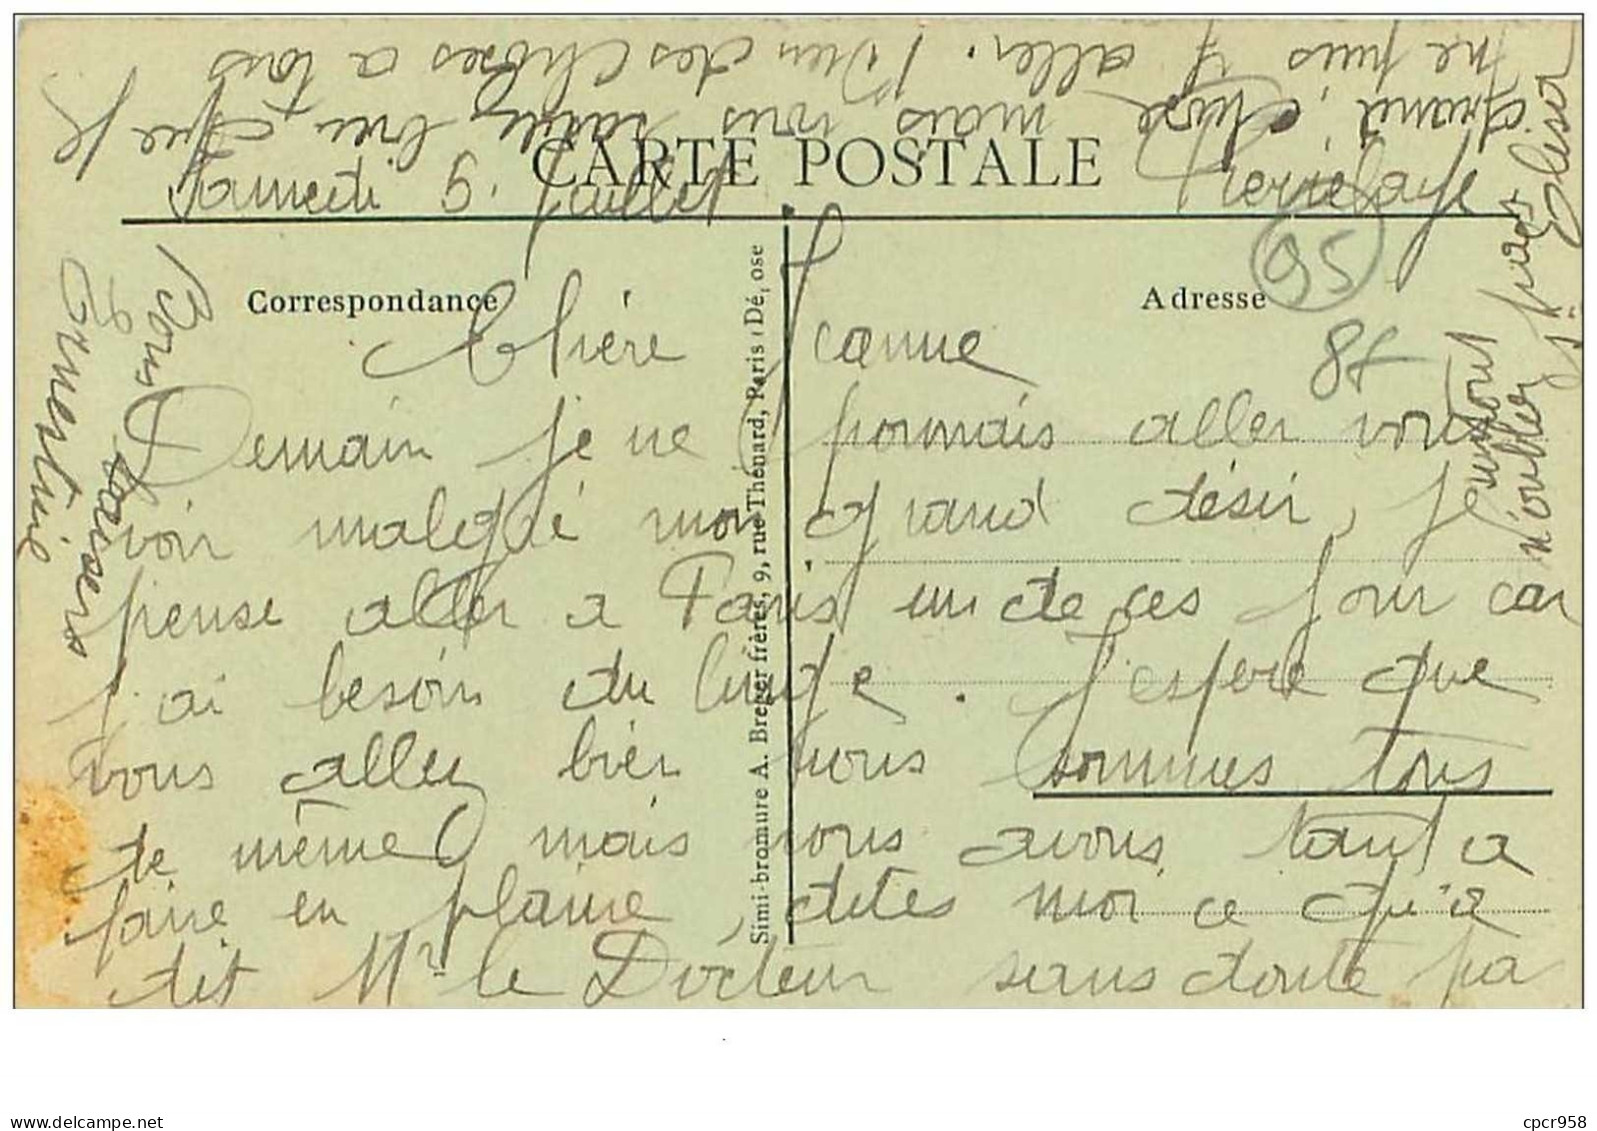 CARTE POSTALE
Pierrelaye
Samedi 9 Juillet
Correspondance
Adresse
95
8f
Chère Jeanne
Demain je ne pourrais aller vous
voir malgré mon grand désir, je
pense aller a Paris un de ces jour car
j'ai besoin du linge. J'espère que
vous allez bien nous sommes tous
de même mais nous avons tant a
faire en plaine, dites moi ce qu'a
dit Mr le Docteur sans doute pa
grand chose mais vous savez bien que je
ne puis y aller. Bien des choses a tous
surtout
n'oublier pas
Elisor
Bons baisers
Ernestine
Simi-bromure A. Breger frères, 9, rue Thénard, Paris (Dé, ose
www.delcampe.net
cpcr958